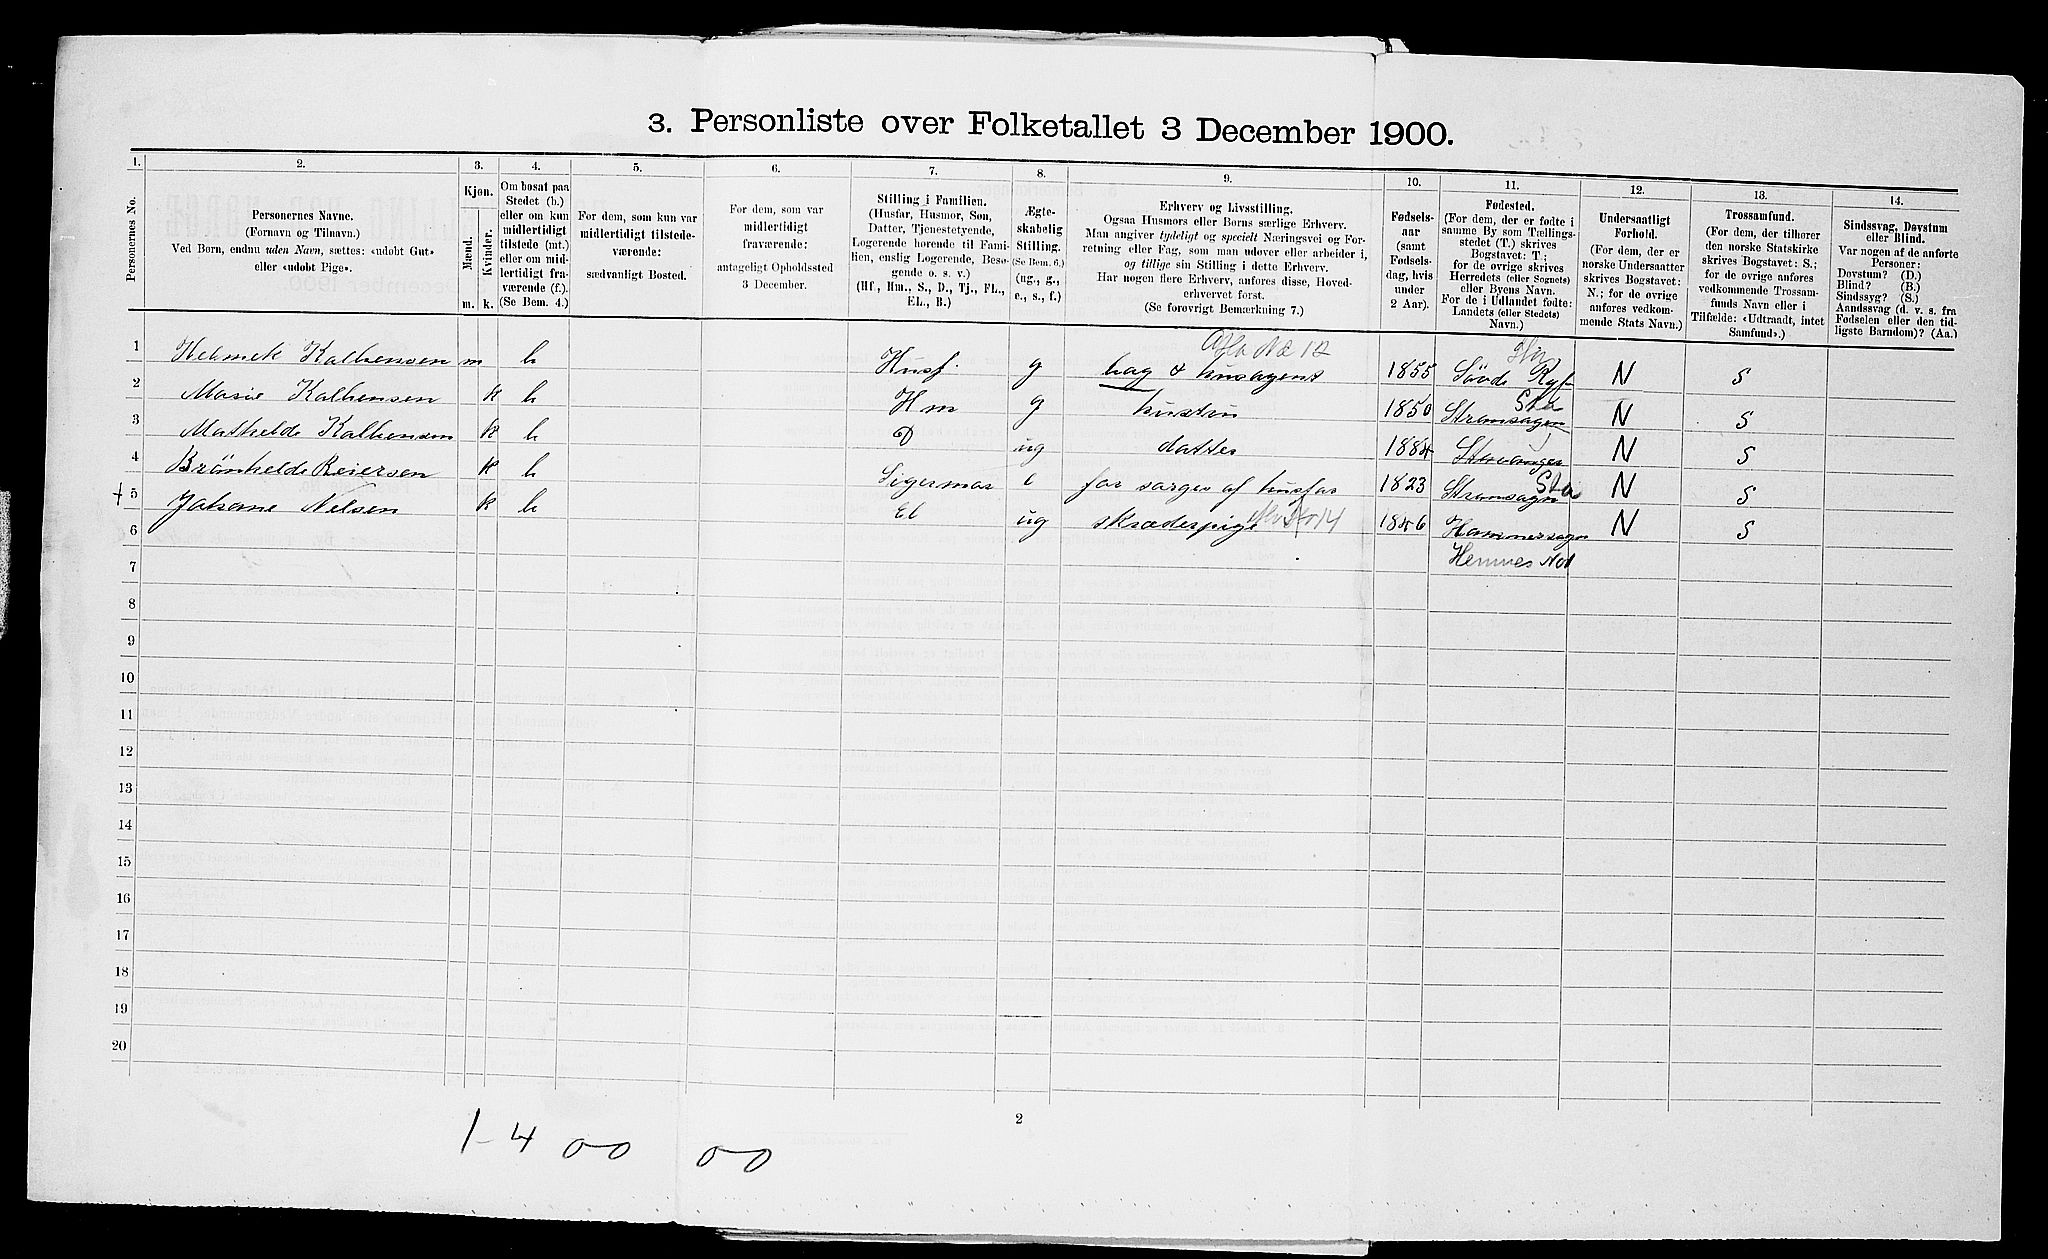 3. Personliste over Folketallet 3 December 1900.
1. 2. 3. 4. 5. 6. 7. 8. 9. 10. 11. 12. 13. 14.
Personernes No.
Personernes Navne.
(Fornavn og Tilnavn.)
Ved Børn, endnu uden Navn, sættes: «udøbt Gut»
eller «udøbt Pige».
Kjøn.
Mænd. Kvinder.
m. k.
Om bosat paa
Stedet (b.)
eller om kun
midlertidigt
tilstede (mt.)
eller om mid-
lertidigt fra-
værende (f.).
(Se Bem. 4.)
For dem, som kun var
midlertidigt tilstede-
værende:
sædvanligt Bosted.
For dem, som var
midlertidigt
fraværende:
antageligt Opholdssted
3 December.
Stilling i Familien.
(Husfar, Husmor, Søn,
Datter, Tjenestetyende,
Logerende hørende til Fami-
lien, enslig Logerende, Besø-
gende o. s. v.)
(Hf., Hm., S., D., Tj., FL.,
EL., B.)
Ægte-
skabelig
Stilling.
(Se Bem. 6.)
(ug., g.,
e., s., f.)
Erhverv og Livsstilling.
Ogsaa Husmors eller Børns særlige Erhverv.
Man angiver tydeligt og specielt Næringsvei og For-
retning eller Fag, som man udøver eller arbeider i,
og tillige sin Stilling i dette Erhverv.
Har nogen flere Erhverv, anføres disse, Hoved-
erhvervet først.
(Se forøvrigt Bemærkning 7.)
Fødsels-
aar
(samt
Fødsels-
dag, hvis
under
2 Aar).
Fødested.
(For dem, der er fødte i
samme By som Tællings-
stedet (T.) skrives
Bogstavet: T.;
for de øvrige skrives
Herredets (eller Sognets)
eller Byens Navn.
For de i Udlandet fødte:
Landets (eller Stedets)
Navn.)
Undersaatligt
Forhold.
(For dem, der er
norske Undersaatter
skrives Bogstavet:
N.; for de øvrige
anføres vedkom-
mende Stats Navn.)
Trossamfund.
(For dem, der tilhører
den norske Statskirke
skrives Bogstavet: S.;
for de øvrige anføres
vedkommende Trossam-
funds Navn eller i
Tilfælde: «Udtraadt, intet
Samfund».)
Sindssvag, Døvstum
eller Blind.
Var nogen af de anførte
Personer:
Døvstum? (D.)
Blind? (B.)
Sindssyg? (S.)
Aandssvag (d. v. s. fra
Fødselen eller den tid-
ligste Barndom)? (Aa.)
1 Kalhensen m b Husf. g bag & husagent 1855 Søvde Ryf N S
2 Marie Kalhensen k b Hm g hustru 1850 Strømsogn Sta N S
3 Mathelde Kalhensen k b D ug datter 1884 Stavanger N S
4 Brønhelde Reiersen k b Sigermor e for sørges af husfar 1823 Strømsogn Sta N S
5 Nelsen k b El ug skrædespige 1846 Hammersogn N S
6 Hemnes Nol
7
8
9
10
11
12
13
14
15
16
17
18
19
20
2
1-4 00 00